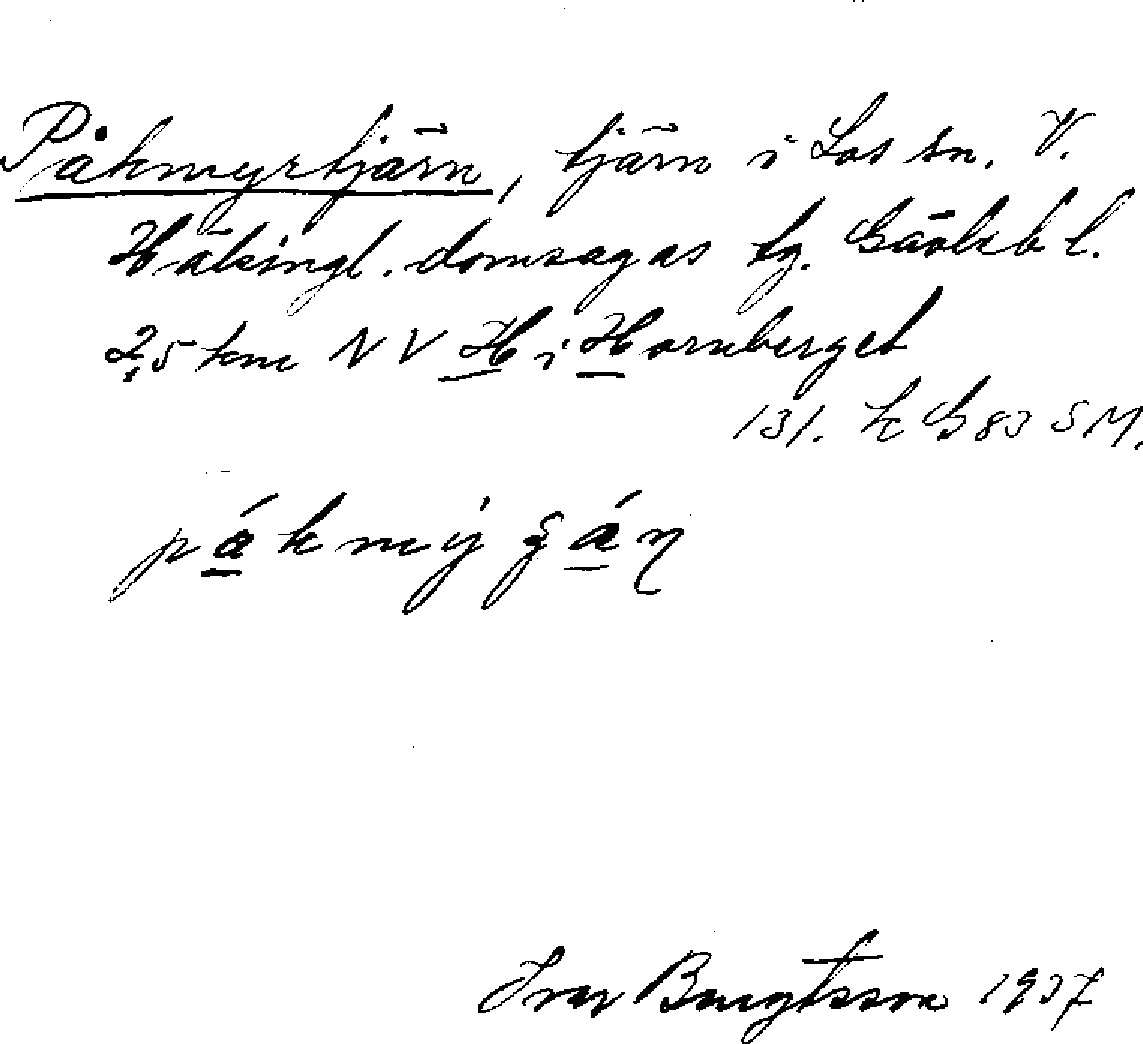 Påkmyrtjärn, tjärn i Los sn. V.
Hälsingl. domsagas tg. Gävleb l.
2,5 km NV H i Hornberget
131. k G 83 SM.
Ivar Bengtsson 1937